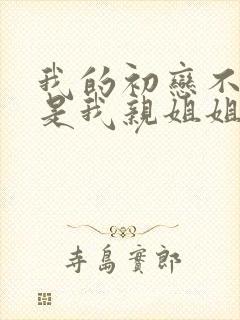 我的初戀不
是我親姐姐
寺島實郎